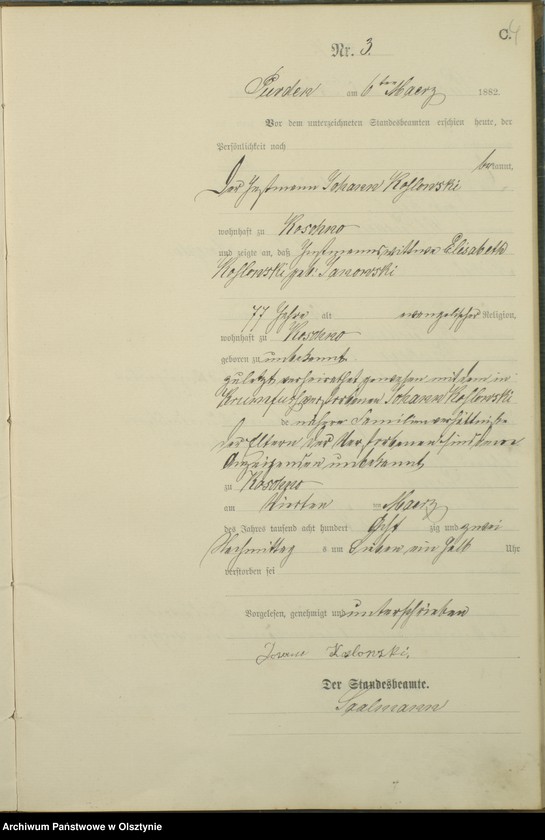 C. 4
Nr. 3.
Purden am 6ten Maerz 1882.
Vor dem unterzeichneten Standesbeamten erschien heute, der
Persönlichkeit nach
bekannt,
Der Instmann Johann Koslowski
wohnhaft zu Koschno
und zeigte an, daß Instmannswittwe Elisabeth
Koslowski geb. Janowski
77 Jahre alt evangelischer Religion,
wohnhaft zu Koschno
geboren zu unbekannt
zuletzt verheirathet gewesen mit dem in
verstorbenen Johann Koslowski
nähere Familienverhältnisse
der Eltern der Verstorbenen sind dem
Anzeigenden unbekannt
zu Koschno
am Vierten Maerz
des Jahres tausend acht hundert Acht zig und zwei
Nachmittag s um Sieben ein halb Uhr
verstorben sei
Vorgelesen, genehmigt und unterschrieben
Koslowski.
Der Standesbeamte.
Saalmann
Archiwum Państwowe w Olsztynie